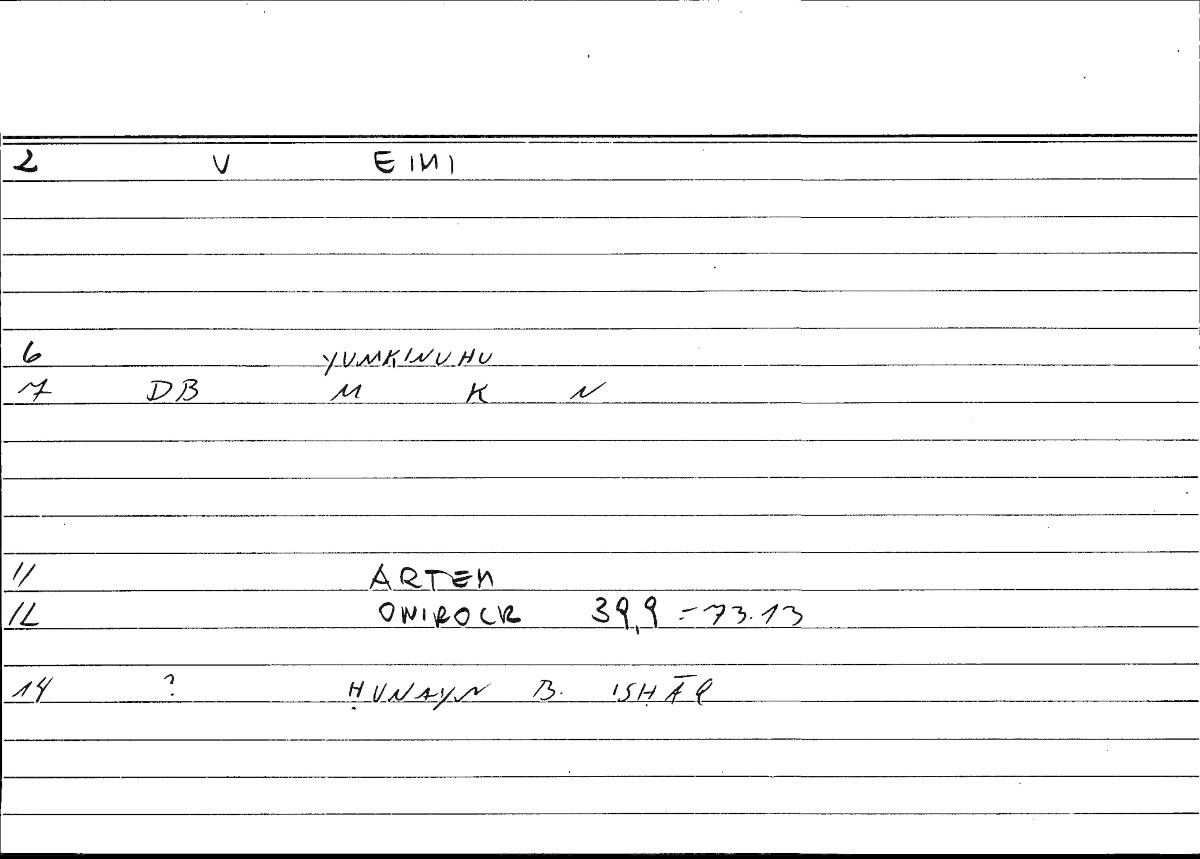 2 V EIMI
6 YUMKINUHU
7 DB M K N
11 ARTEM
12 ONIROCR 39,9 = 73.13
14 ? ḤUNAYN B. ISḤĀQ